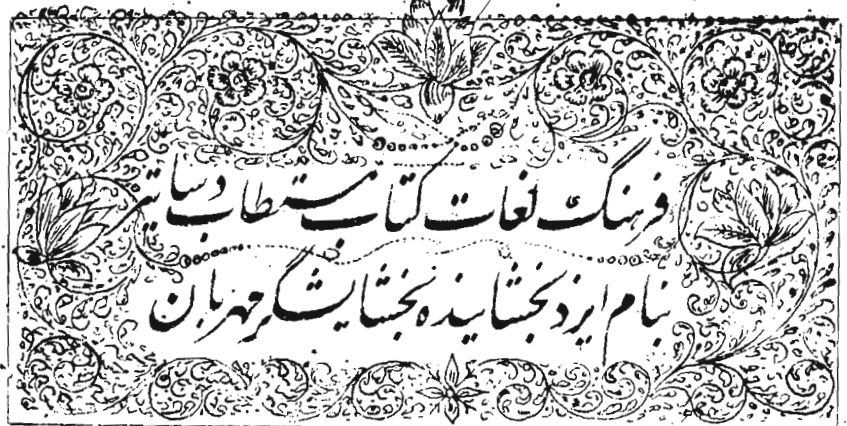 فرهنگ لغات کتاب مستطاب دساتیر
بنام ایزد بخشاینده بخشایشگر مهربان